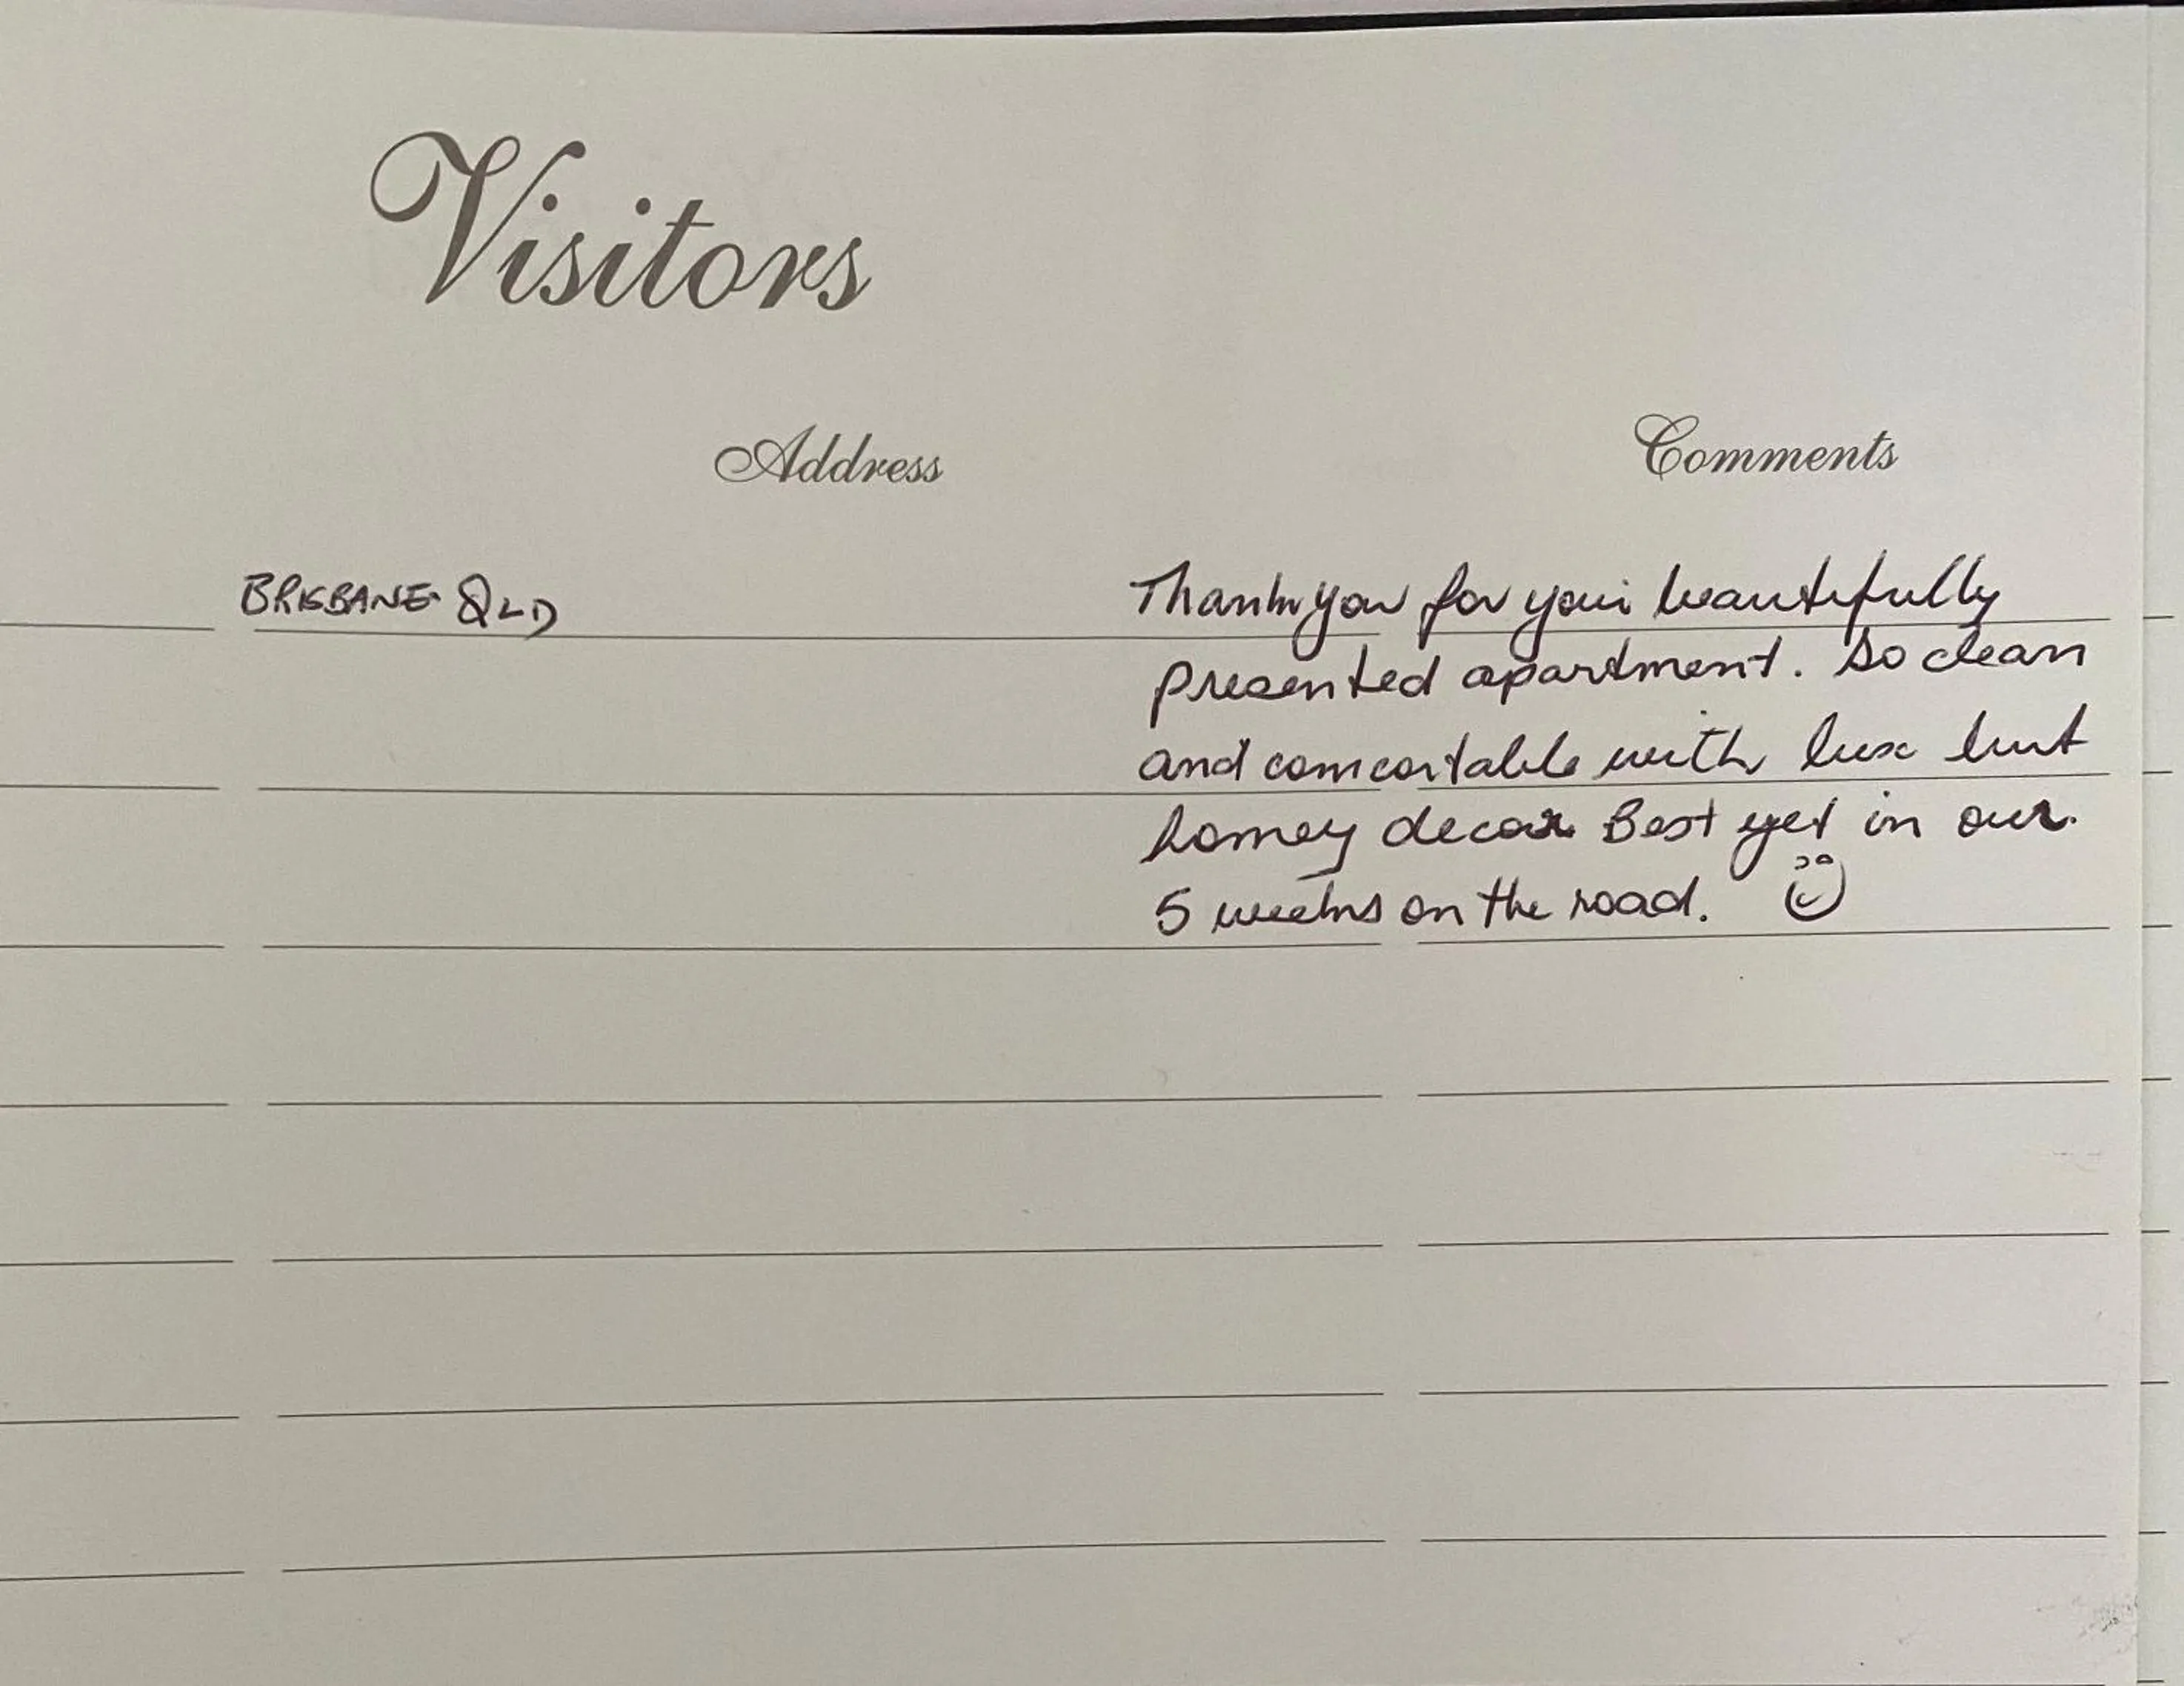 Visitors
Address Comments
BRISBANE QLD Thank you for your beautifully
presented apartment. So clean
and comfortable with lux but
homey decor Best yet in our
5 weeks on the road.